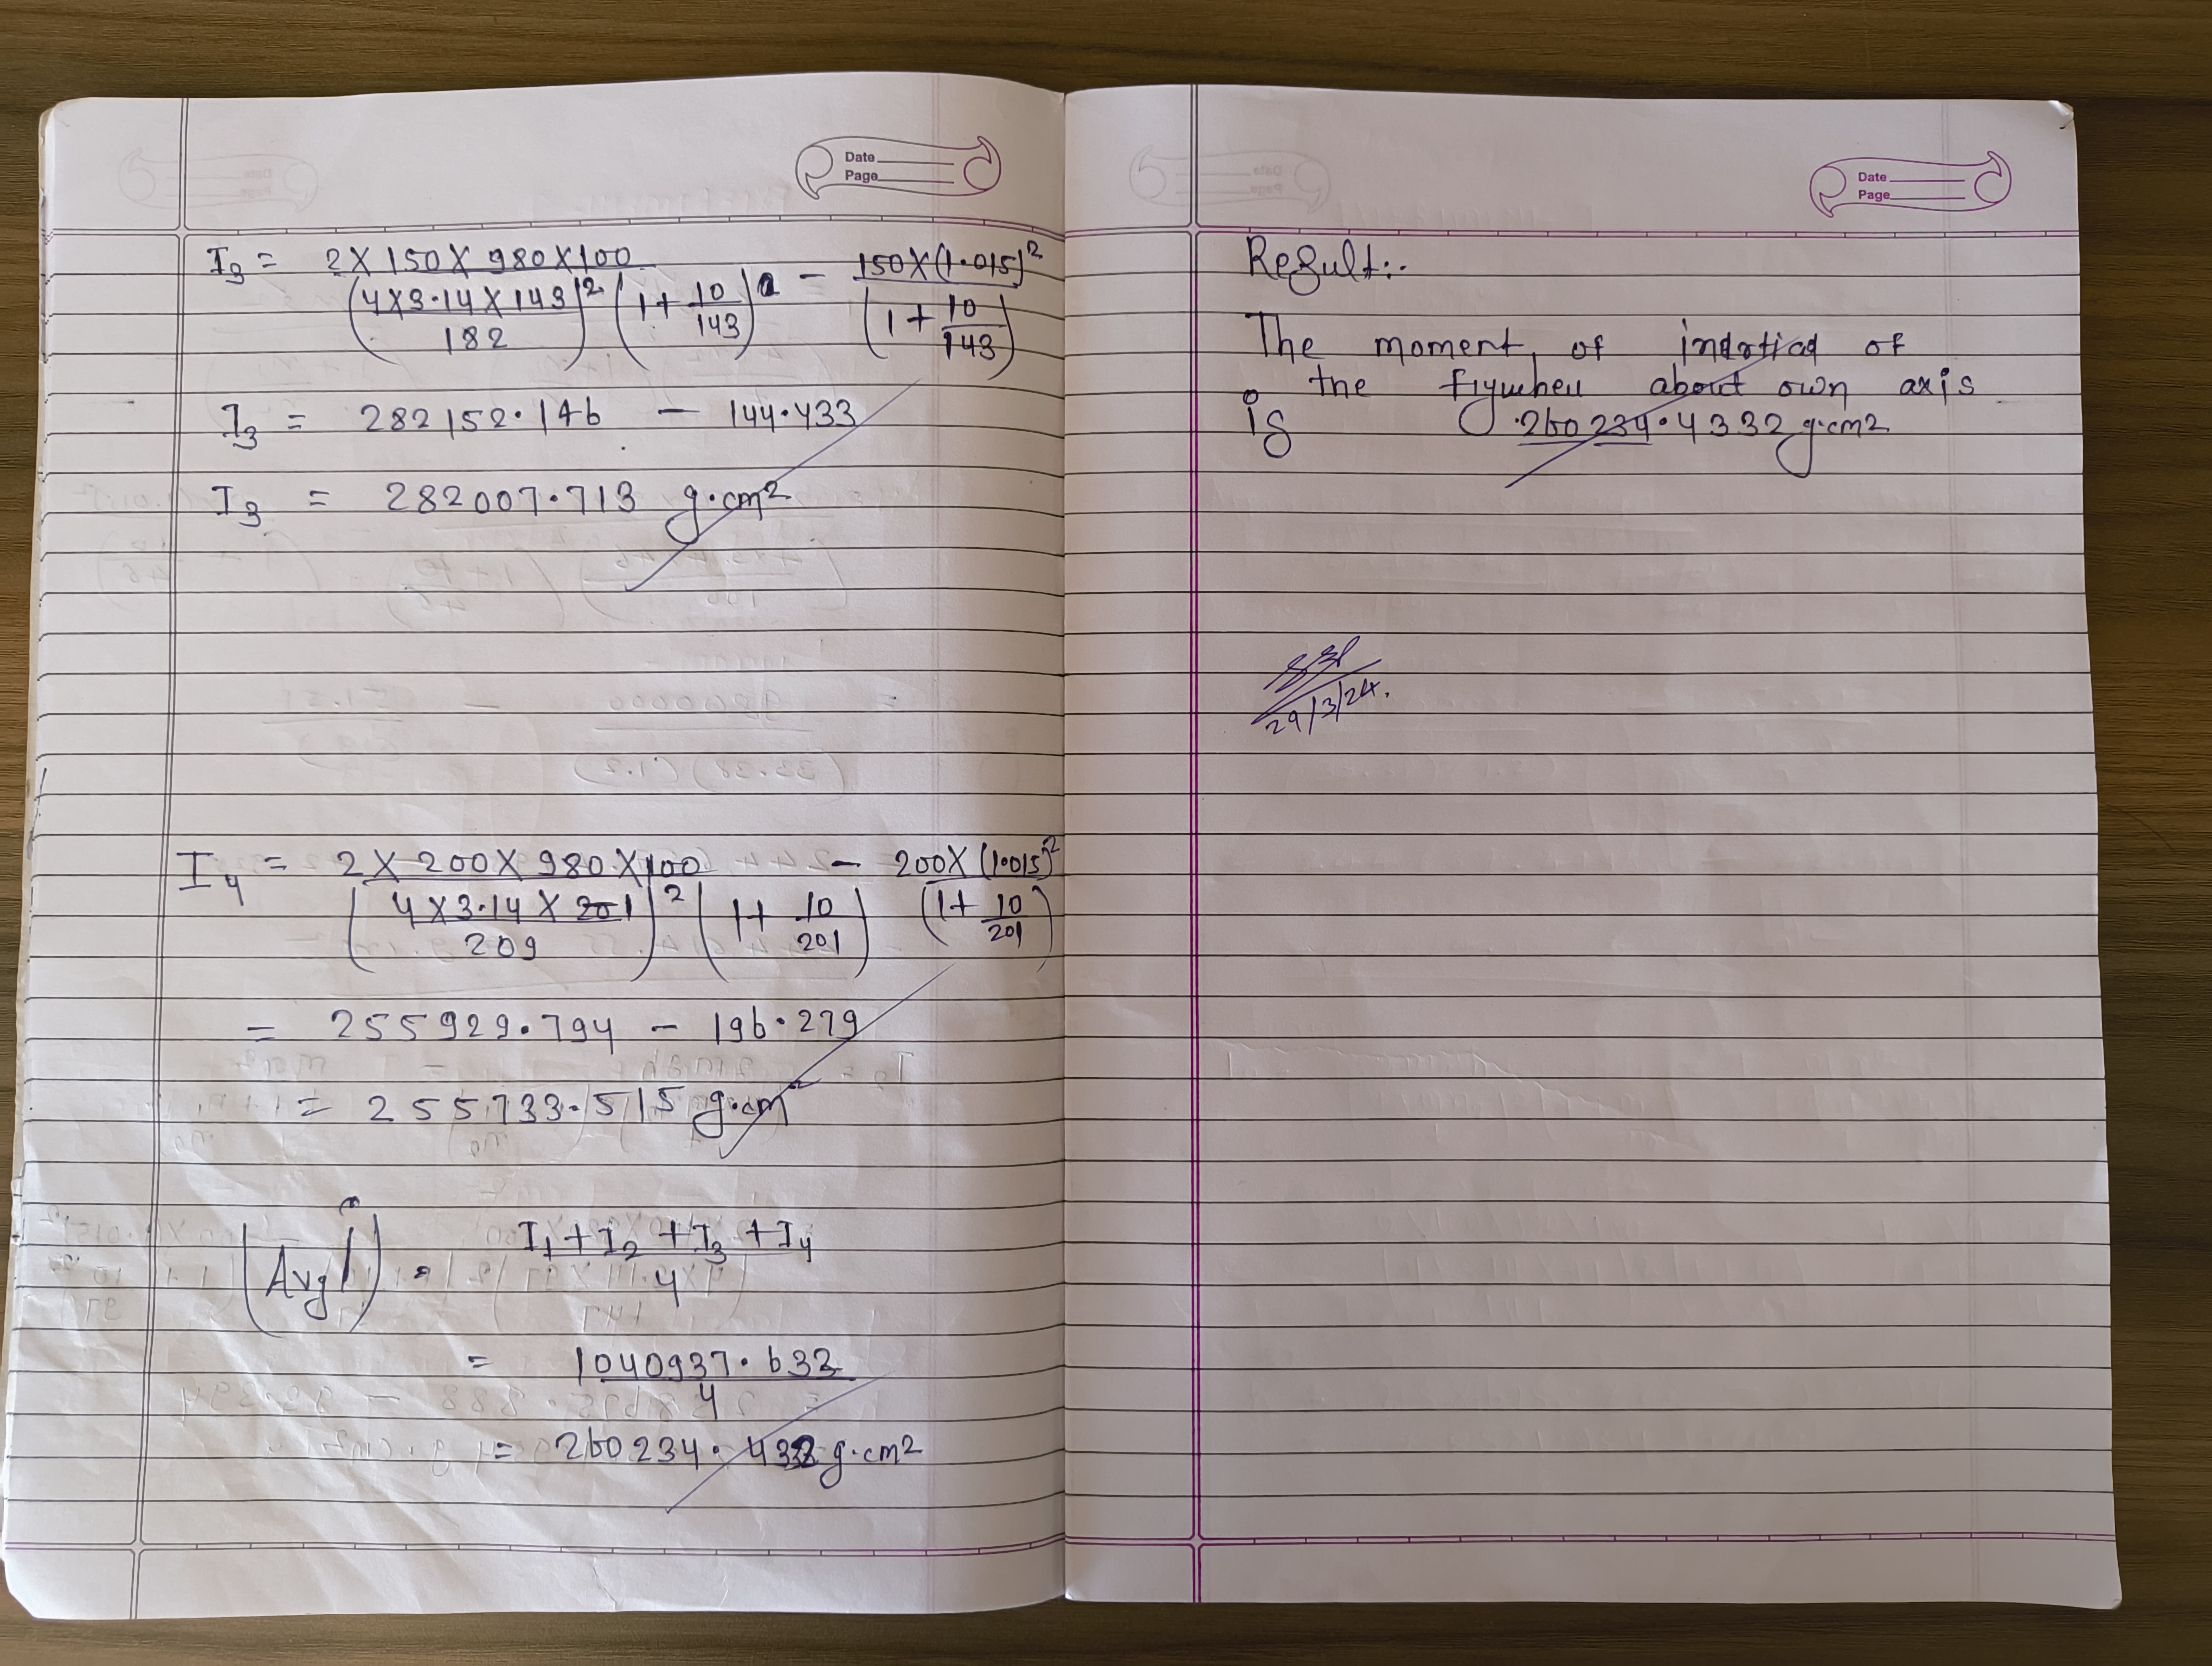 Date
Page
I3 = 2 X 150 X 980 X 100 / (4 X 3.14 X 143 / 182)^2 (1 + 10/143) - 150 X (1.015)^2 / (1 + 10/143)
I3 = 282152.146 - 144.433
I3 = 282007.713 g.cm2
I4 = 2 X 200 X 980 X 100 / (4 X 3.14 X 201 / 209)^2 (1 + 10/201) - 200 X (1.015)^2 / (1 + 10/201)
= 255929.794 - 196.279
= 255733.515 g.cm2
(Avg I) = I1 + I2 + I3 + I4 / 4
= 1040937.632 / 4
= 260234.432 g.cm2
Date
Page
Result:-
The moment of indrtiad of
the flywheu about own axis
is 260234.4332 g.cm2
29/3/24.